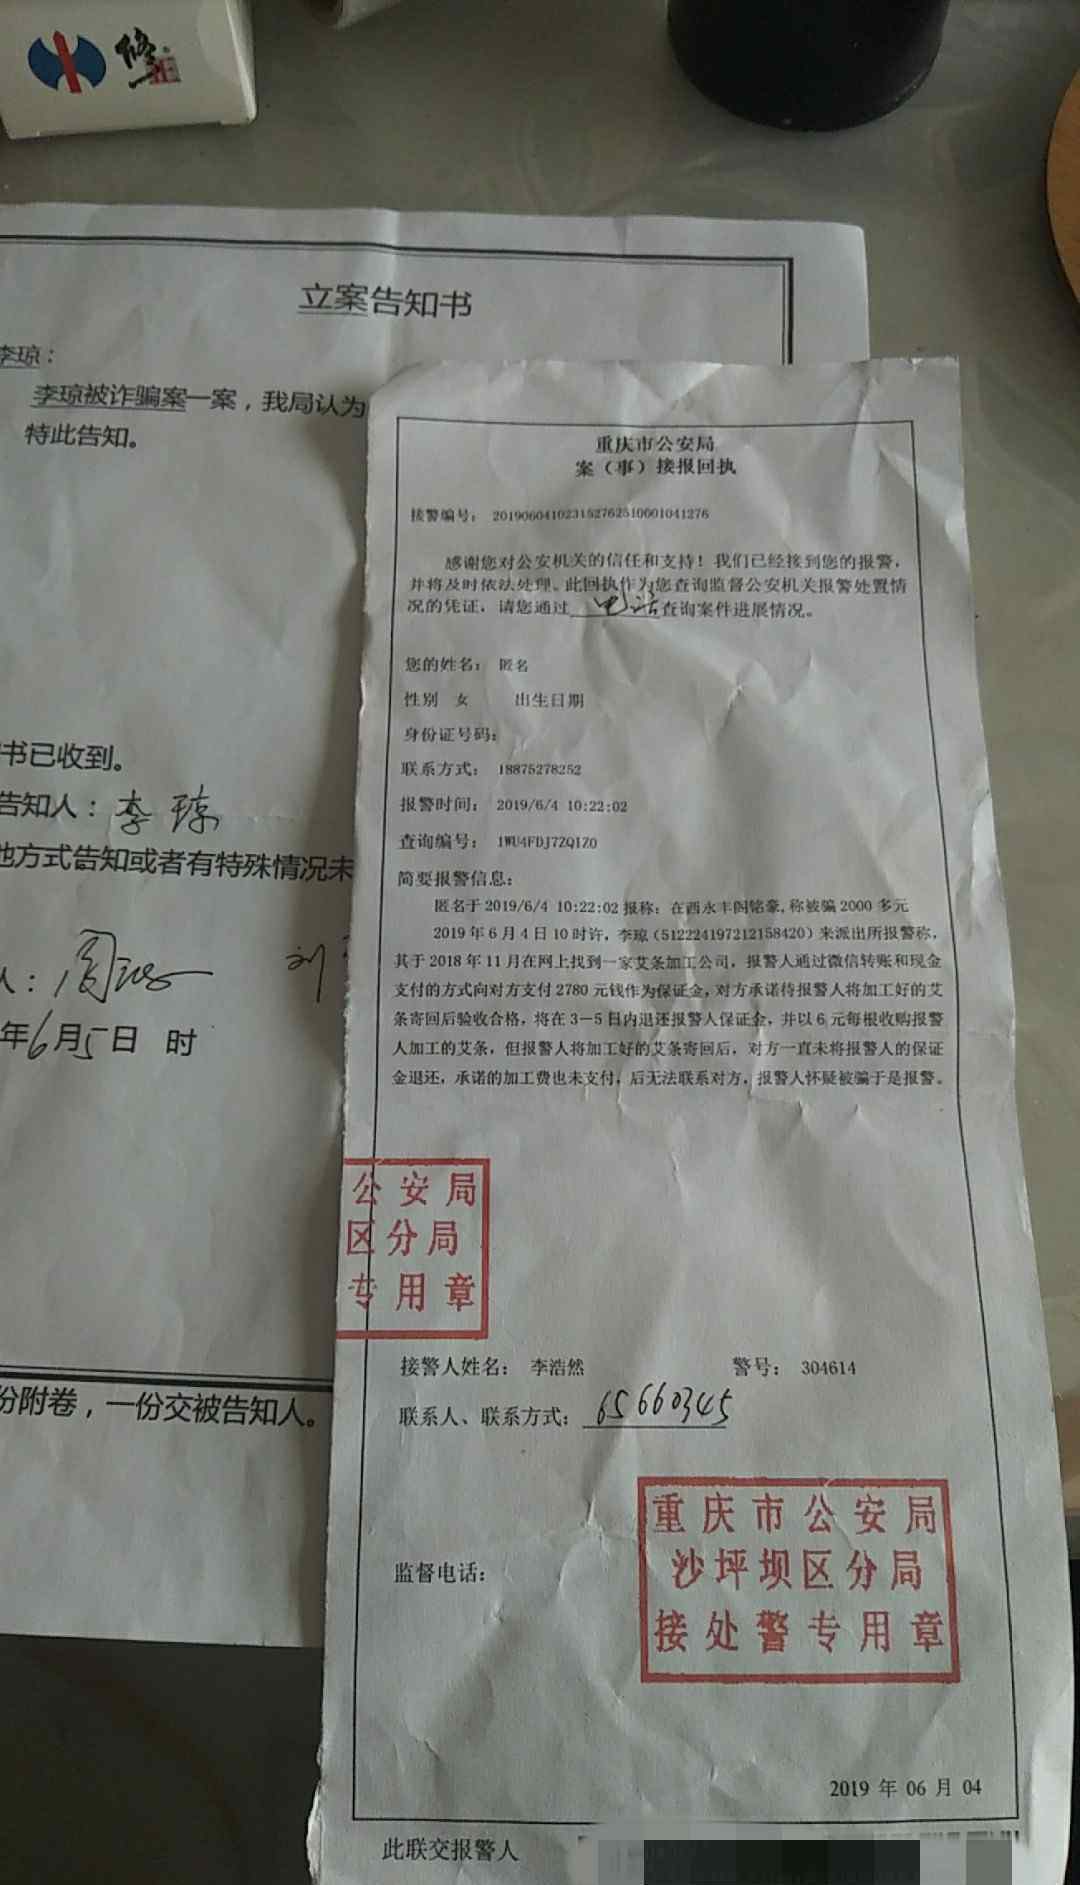 修正
立案告知书
李琼：
李琼被诈骗案一案，我局认为
特此告知。
书已收到。
告知人：李琼
他方式告知或者有特殊情况未
人：
刘
年6月5日 时
份附卷，一份交被告知人。
重庆市公安局
案（事）接报回执
接警编号： 201906041023152762510001041276
感谢您对公安机关的信任和支持！我们已经接到您的报警，
并将及时依法处理。此回执作为您查询监督公安机关报警处置情
况的凭证，请您通过 电话 查询案件进展情况。
您的姓名： 匿名
性别 女 出生日期
身份证号码：
联系方式： 18875278252
报警时间： 2019/6/4 10:22:02
查询编号： 1WU4FDJ7ZQ1Z0
简要报警信息：
匿名于2019/6/4 10:22:02报称：在西永丰阁铭豪,称被骗2000多元
2019年6月4日10时许，李琼（512224197212158420）来派出所报警称，
其于2018年11月在网上找到一家艾条加工公司，报警人通过微信转账和现金
支付的方式向对方支付2780元钱作为保证金，对方承诺待报警人将加工好的艾
条寄回后验收合格，将在3－5日内退还报警人保证金，并以6元每根收购报警
人加工的艾条，但报警人将加工好的艾条寄回后，对方一直未将报警人的保证
金退还，承诺的加工费也未支付，后无法联系对方，报警人怀疑被骗于是报警。
公安局
区分局
专用章
接警人姓名： 李浩然 警号： 304614
联系人、联系方式： 65660345
监督电话：
重庆市公安局
沙坪坝区分局
接处警专用章
2019 年 06 月 04
此联交报警人